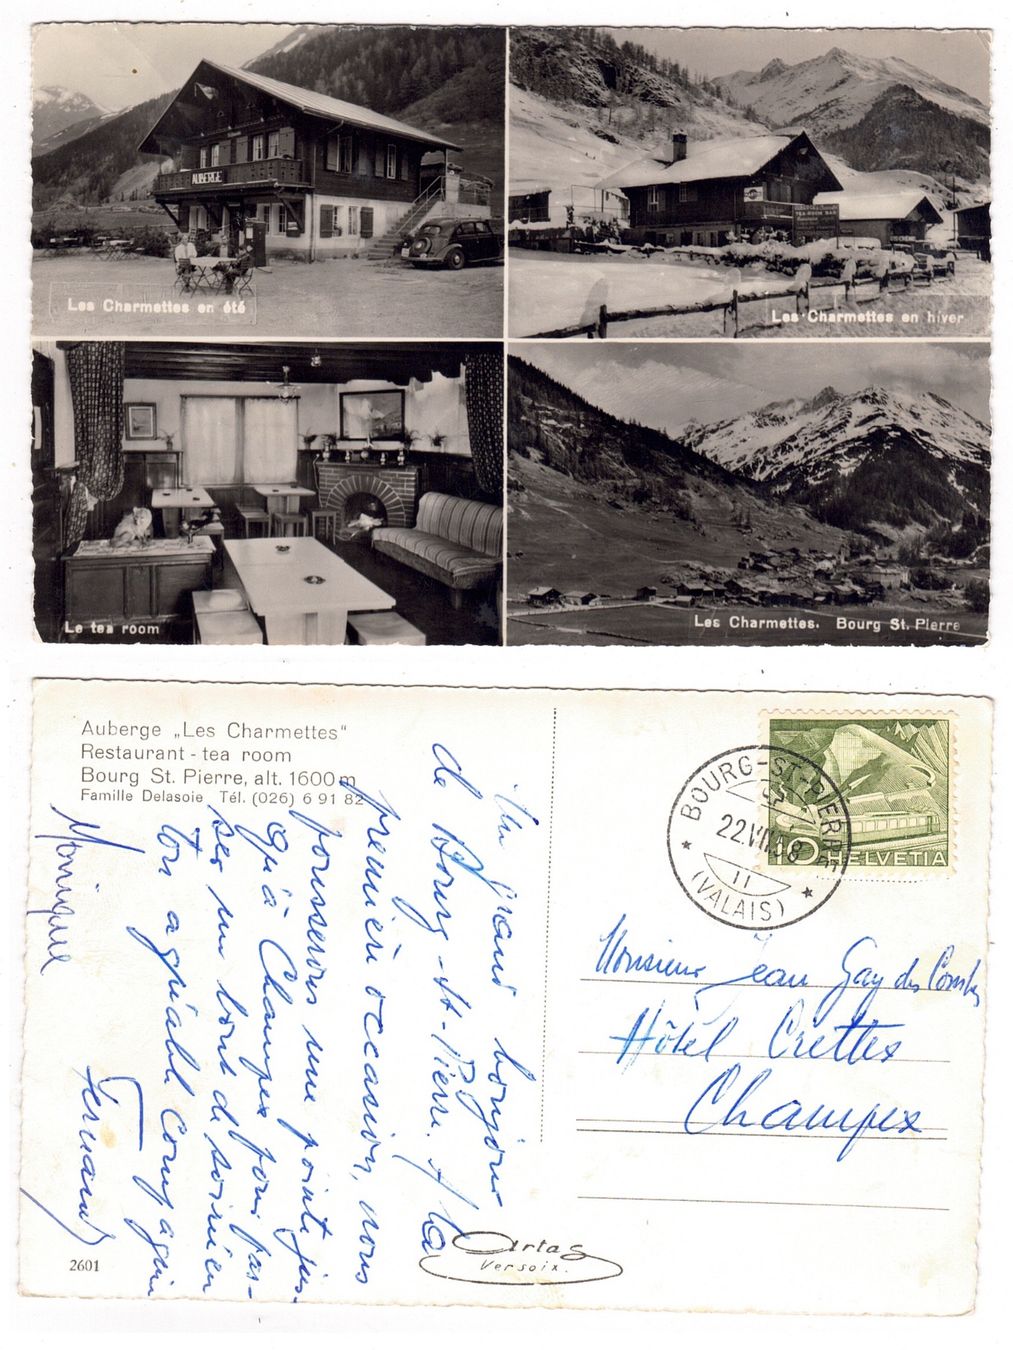 AUBERGE
Les Charmettes en été
TEA-ROOM BAR
Les Charmettes en hiver
Le tea room
Les Charmettes. Bourg St. Pierre
Auberge „Les Charmettes"
Restaurant - tea room
Bourg St. Pierre, alt. 1600 m
Famille Delasoie Tél. (026) 6 91 82
Un grand bonjour
de Bourg-St-Pierre. A la
première occasion, nous
pousserons une pointe jus-
qu'à Champex pour pas-
ser un bout de soirée en
ton agréable compagnie
Fernand
Monique
2601
Artas
Versoix.
BOURG-ST-PIERRE
22.VII.58
11
(VALAIS)
10 HELVETIA
Monsieur Jean Gay des Combes
Hôtel Crettex
Champex